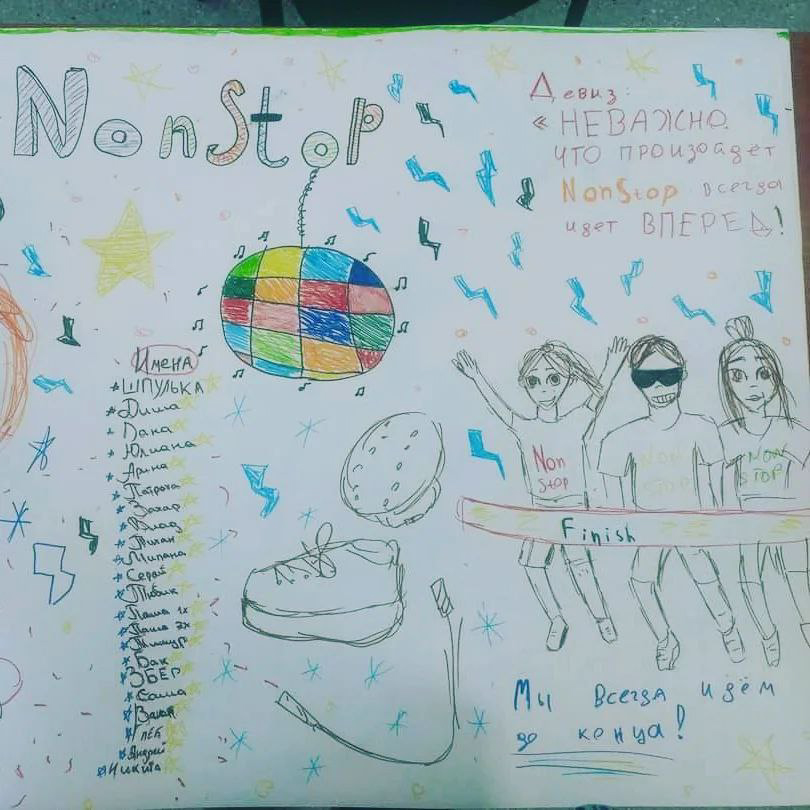 NonStop
Девиз:
« НЕВАЖНО
что произойдёт
NonStop всегда
идет ВПЕРЕД!
Имена
ШПУЛЬКА
Дима
Дана
Юлиана
Арина
Захар
Влад
Милана
Серый
Любик
Паша 1х
Паша 2х
Бак
ЗБЕР
Саша
Глеб
Андрей
Никита
Non
Stop
NON
STOP
NON
STOP
Finish
Мы всегда идём
до конца!